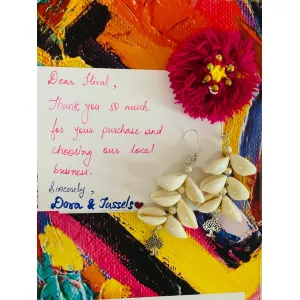 Dear Hiral,
Thank you so much
for your purchase and
choosing our local
business.
Sincerely,
Dora & Tassels